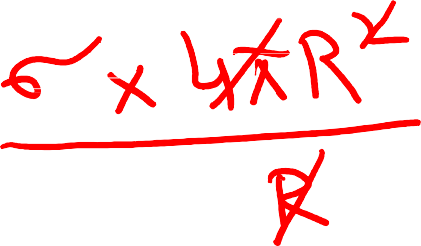 σ × 4πR²
R